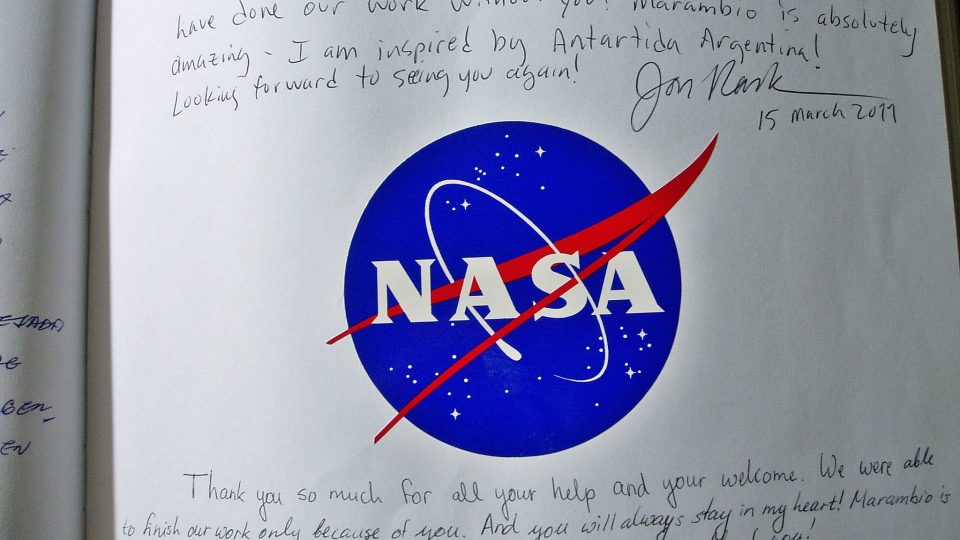 have done our work without you! Marambio is absolutely
amazing - I am inspired by Antartida Argentina!
Looking forward to seeing you again!
15 March 2011
NASA
GEN
EN
Thank you so much for all your help and your welcome. We were able
to finish our work only because of you. And you will always stay in my heart! Marambio is